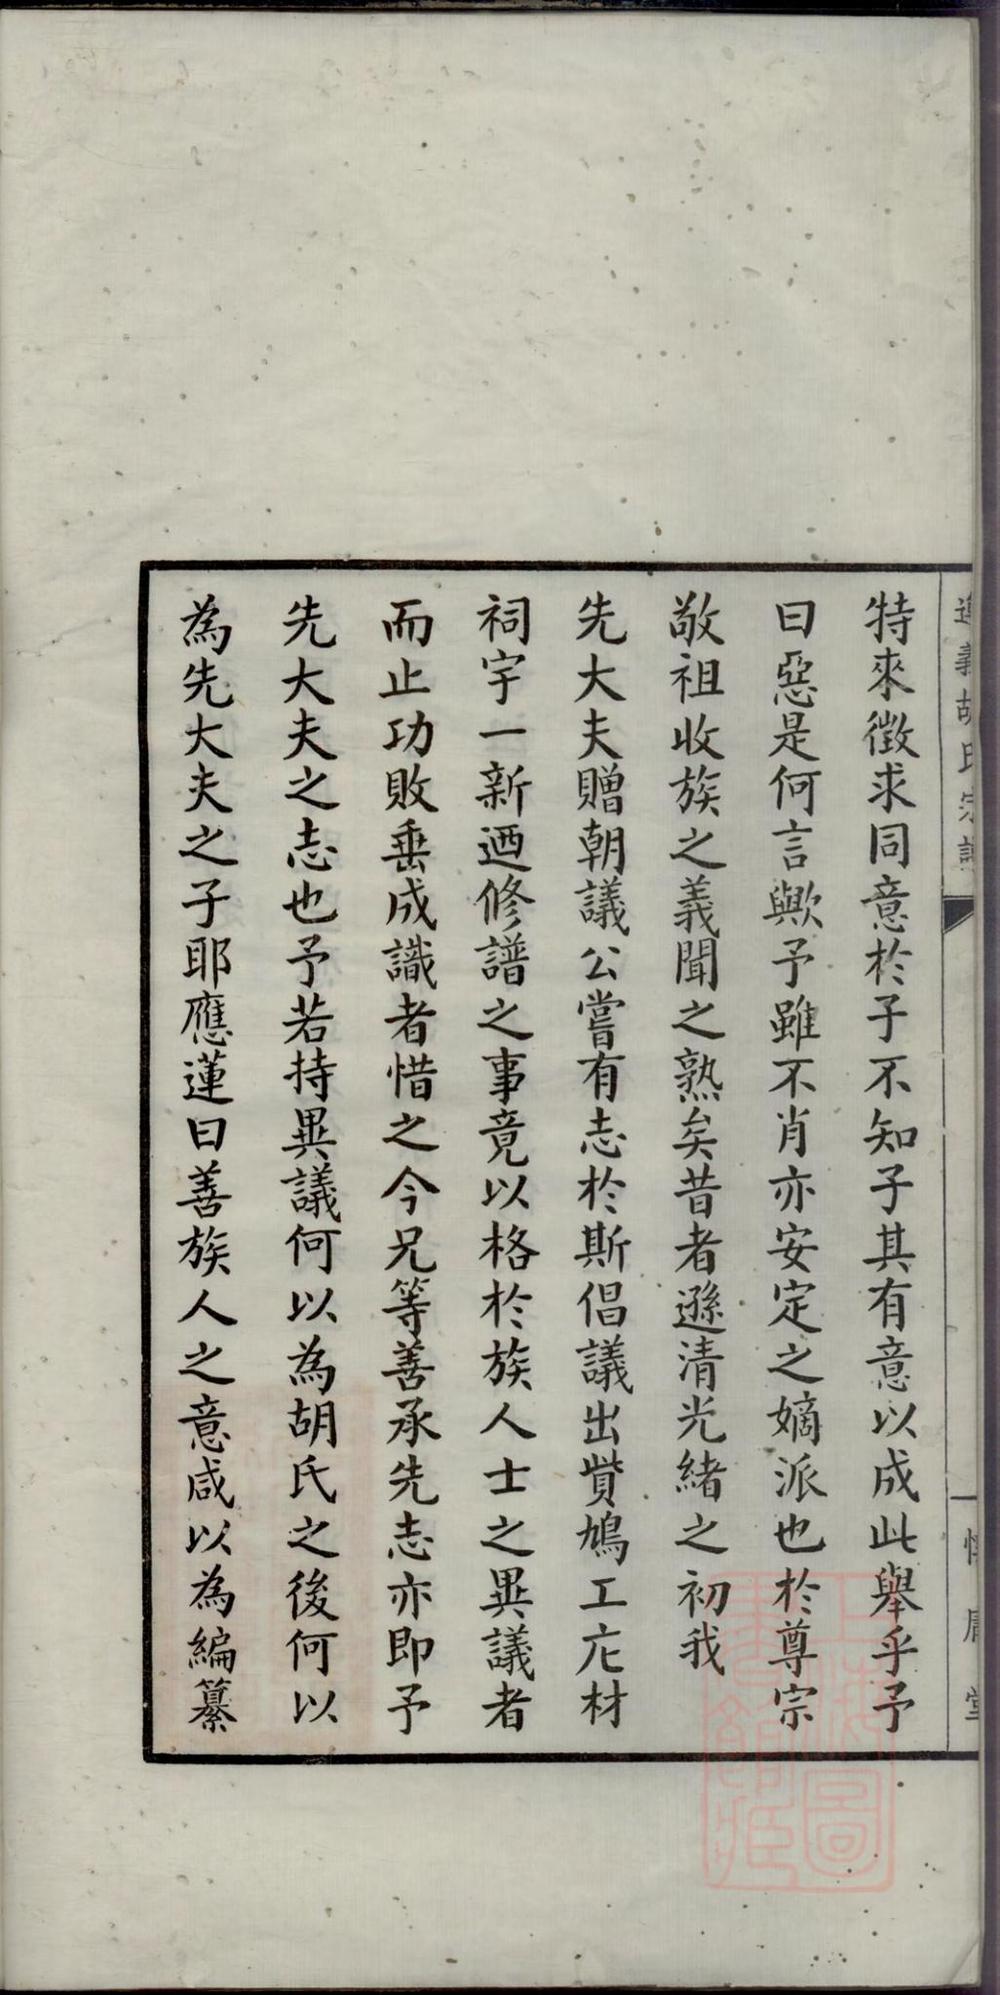 遵義胡氏宗譜
特來徵求同意於子不知子其有意以成此舉乎予
曰惡是何言歟予雖不肖亦安定之嫡派也於尊宗
敬祖收族之義聞之熟矣昔者遜清光緒之初我
先大夫贈朝議公嘗有志於斯倡議出貲鳩工庀材
祠宇一新迺修譜之事竟以格於族人士之異議者
而止功敗垂成識者惜之今兄等善承先志亦即予
先大夫之志也予若持異議何以為胡氏之後何以
為先大夫之子耶應蓮曰善族人之意咸以為編纂